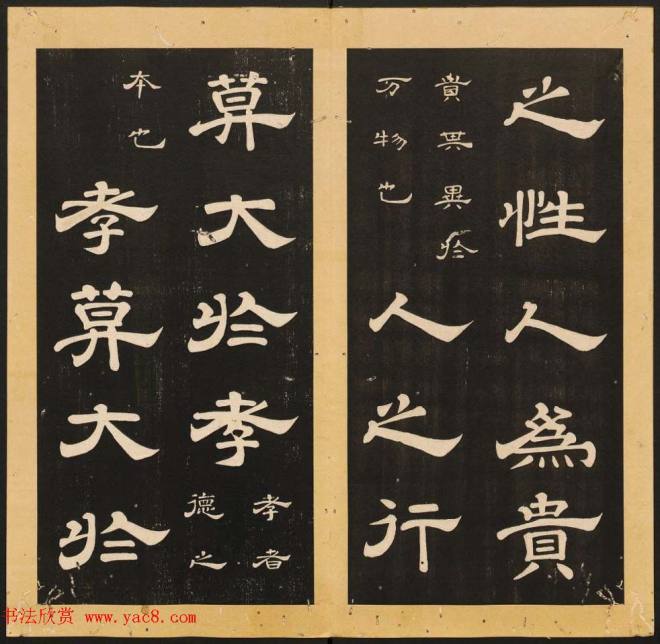 之性人爲貴
貴其異於
万物也
人之行
莫大於孝
孝者
德之
本也
孝莫大於
书法欣赏 www.yac8.com